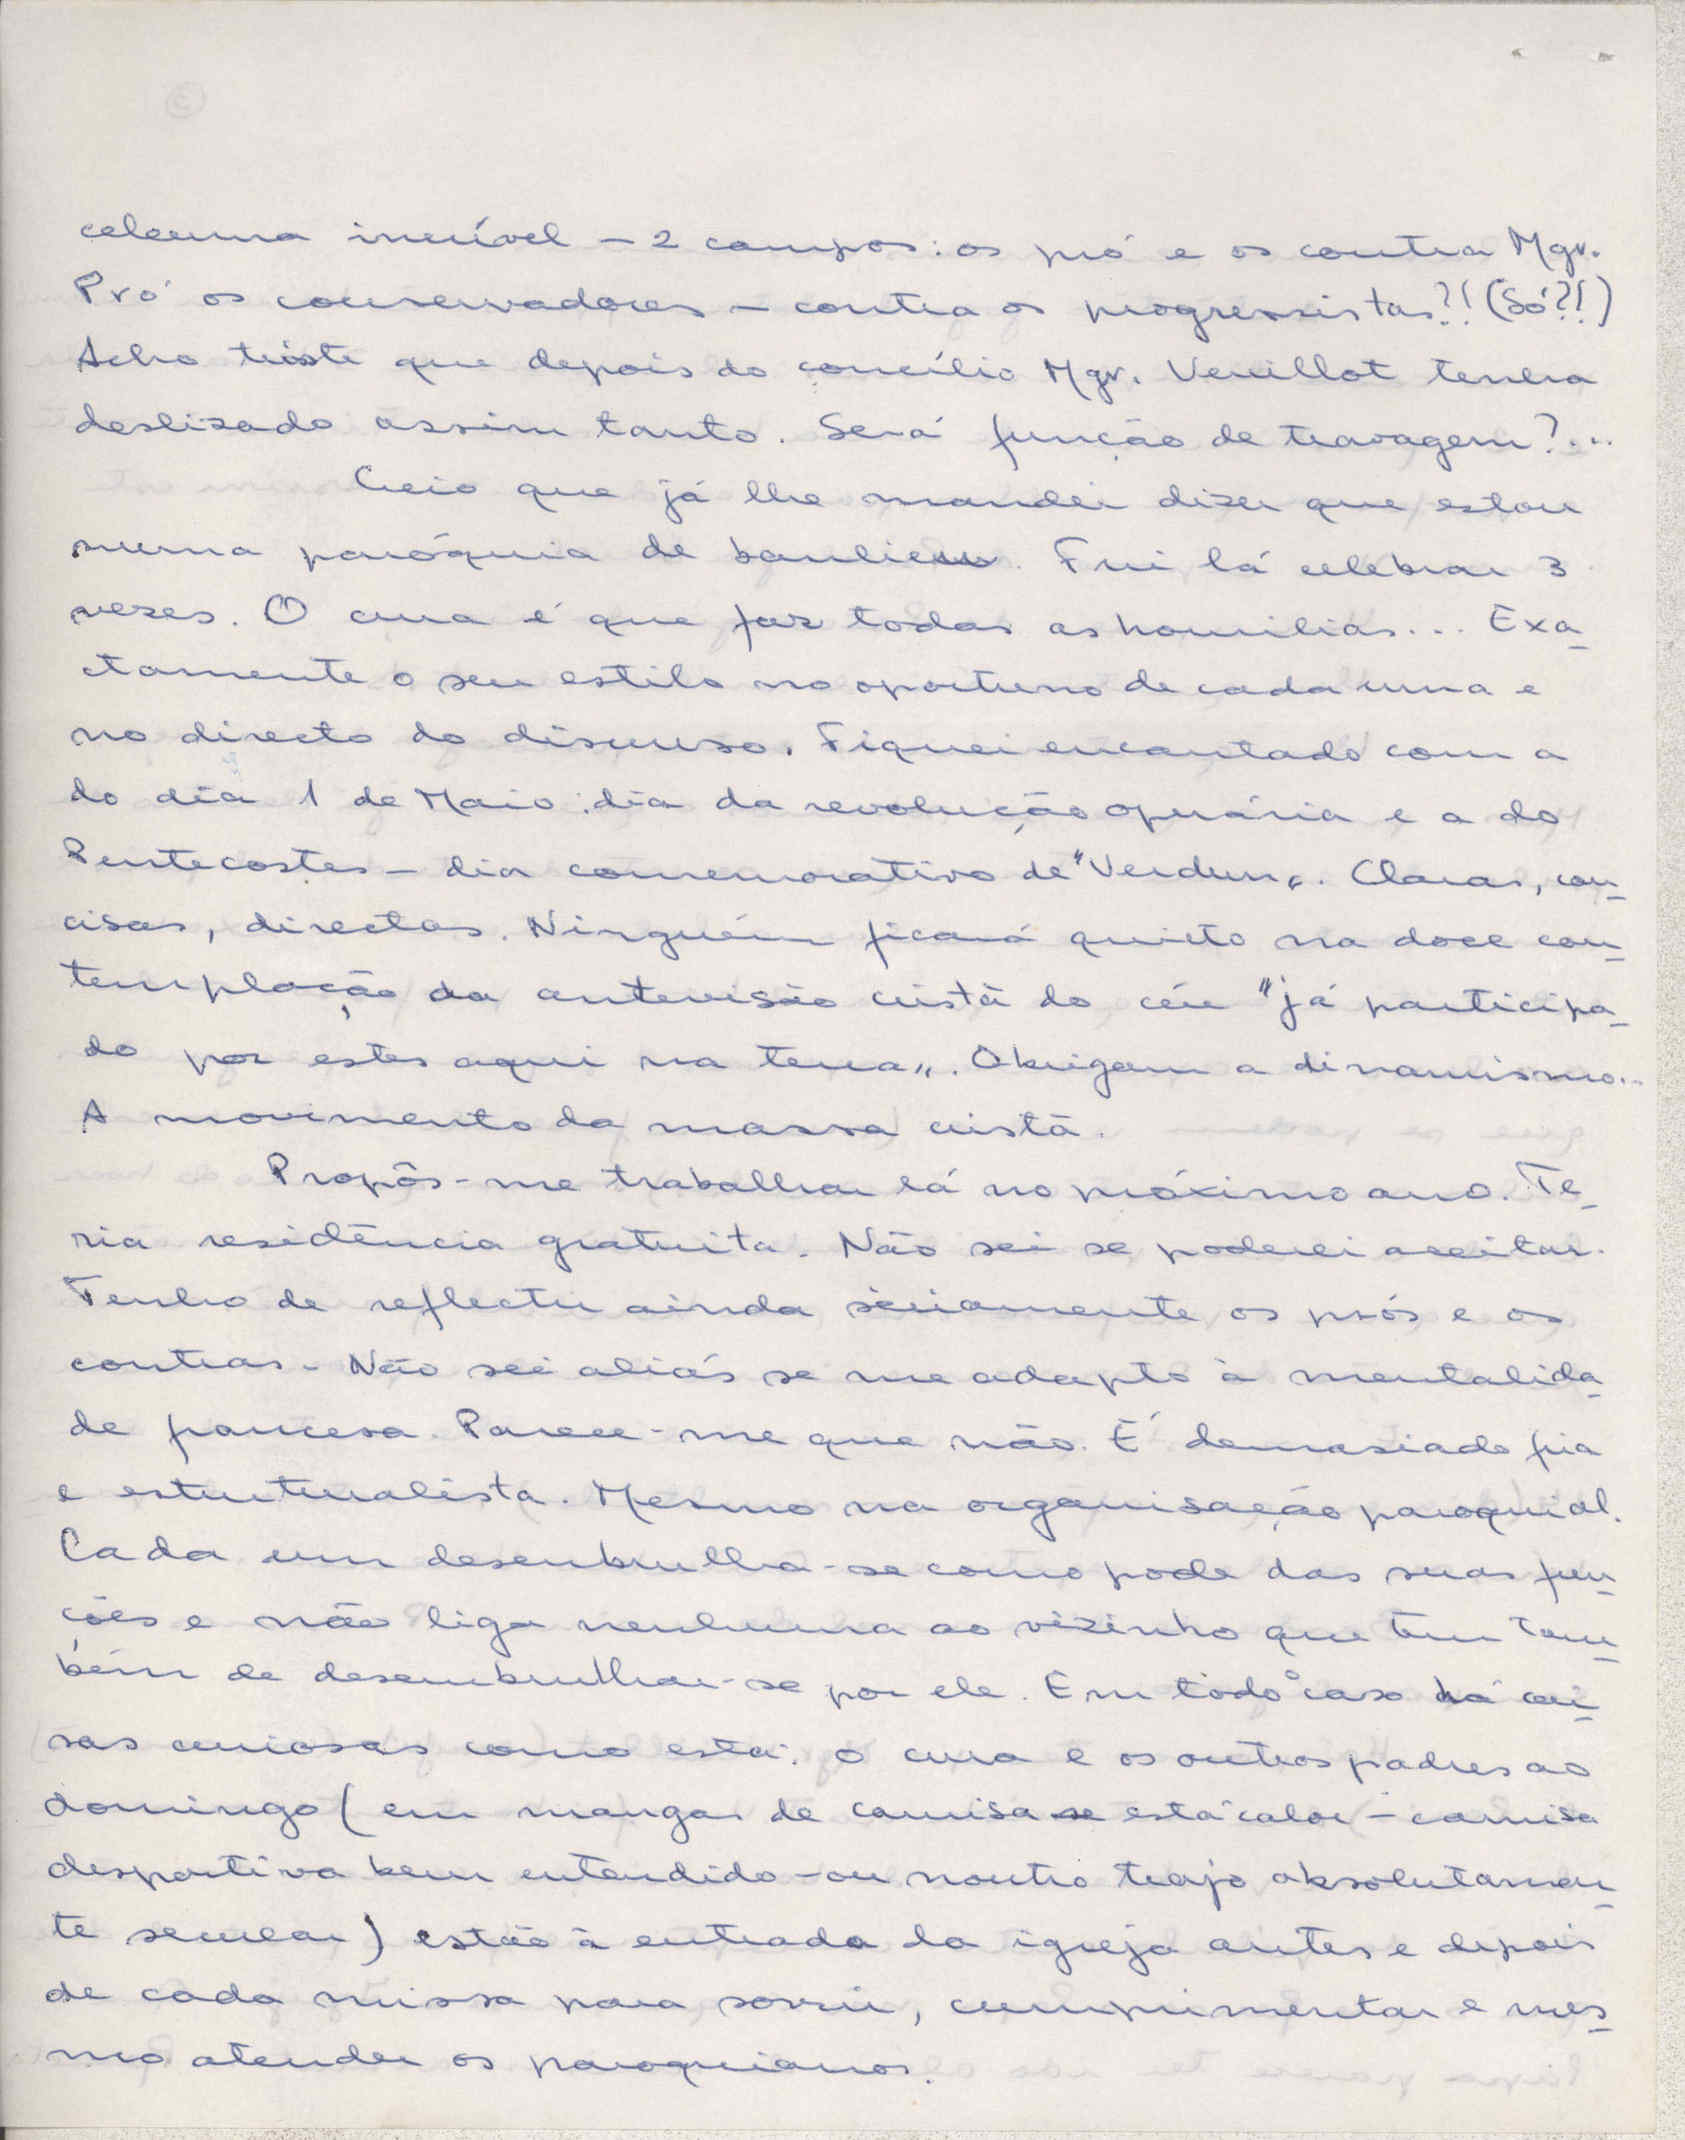 celeuma incrível - 2 campos: os pró e os contra Mgr.
Pró os conservadores - contra os progressistas?! (Só?!)
Acho triste que depois do concílio Mgr. Veuillot tenha
deslizado assim tanto. Será função de travagem?...
Creio que já lhe mandei dizer que estou
numa paróquia de banlieu. Fui lá celebrar 3
vezes. O cura é que faz todas as homilias... Exa-
ctamente o seu estilo no oportuno de cada uma e
no directo do discurso. Fiquei encantado com a
do dia 1 de Maio: dia da revolução operária e a do
Pentecostes - dia comemorativo de "Verdun". Claras, con-
cisas, directas. Ninguém ficará quieto na doce con-
templação da antevisão cristã do céu "já participa-
do por estes aqui na terra". Obrigam a dinamismo...
A movimento da massa cristã.
Propôs-me trabalhar lá no próximo ano. Te-
ria residência gratuita. Não sei se poderei aceitar.
Tenho de reflectir ainda sèriamente os prós e os
contras. Não sei aliás se me adapto à mentalida-
de francesa. Parece-me que não. É demasiado fria
e estruturalista. Mesmo na organisação paroquial.
Cada um desenbrulha-se como pode das suas fun-
ções e não liga nenhuma ao vizinho que tem tam-
bém de desembrulhar-se por ele. Em todo o caso há coi-
sas curiosas como esta: o cura e os outros padres ao
domingo (em mangas de camisa se está calor - camisa
desportiva bem entendido - ou noutro trajo absolutamen-
te secular) estão à entrada da igreja antes e depois
de cada missa para sorrir, cumprimentar e mes-
mo atender os paroquianos.